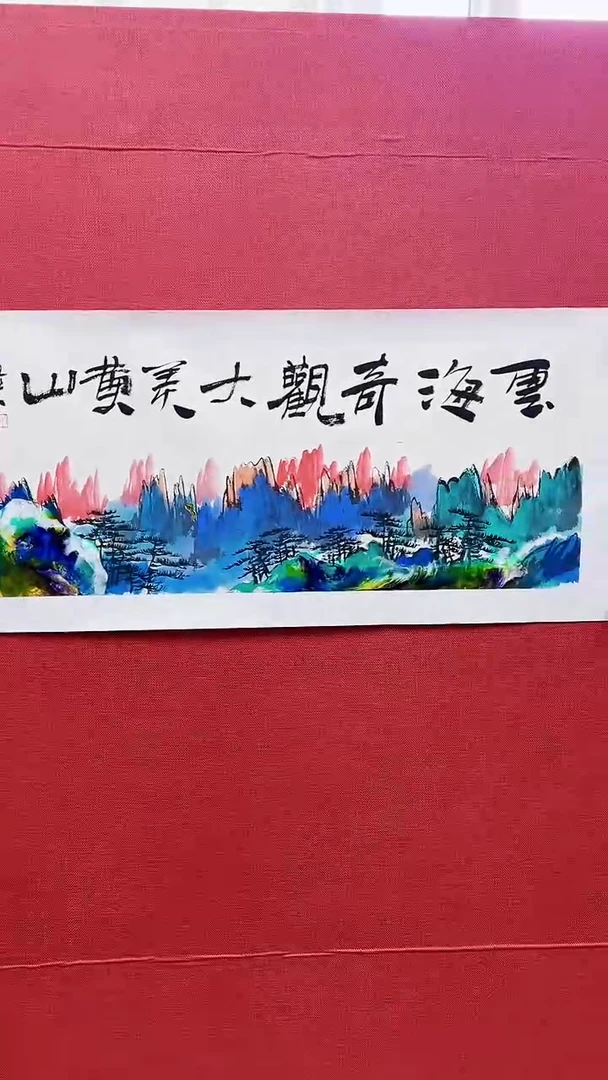 雲海奇觀大美黄山